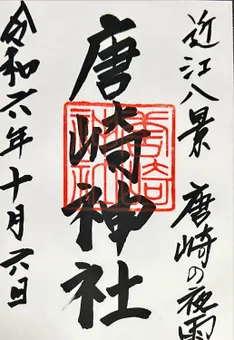 近江八景 唐崎の夜雨
唐崎神社
令和六年十月六日
唐崎神社